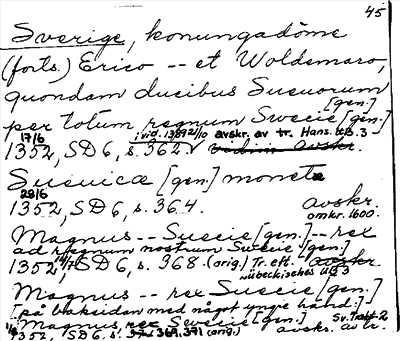 45
Sverige, konungadöme
(forts.) Erico -- et Woldemaro,
quondam ducibus Sueuorum
[gen.]
per totum regnum Swecie [gen.]
17/6 i vid. 1389 2/10 avskr. av tr. Hans. UB. 3
1352, SD 6, s. 362.
Sueuica [gen.] moneta
28/6
1352, SD 6, s. 364. avskr.
omkr. 1600.
Magnus -- Suecie [gen.] -- rex
ad regnum nostrum Swecie [gen.]
1352, 14/7 SD 6, s. 368. (orig.) Tr. eft. avskr
Lübeckisches UB 3
Magnus -- rex Suecie [gen.]
[på baksidan med något yngre hand:]
Magnus rex Swecie [gen.] Sv. Trakt 2
1352, SD 6, s. 369, 371 (orig.) avskr. av tr.